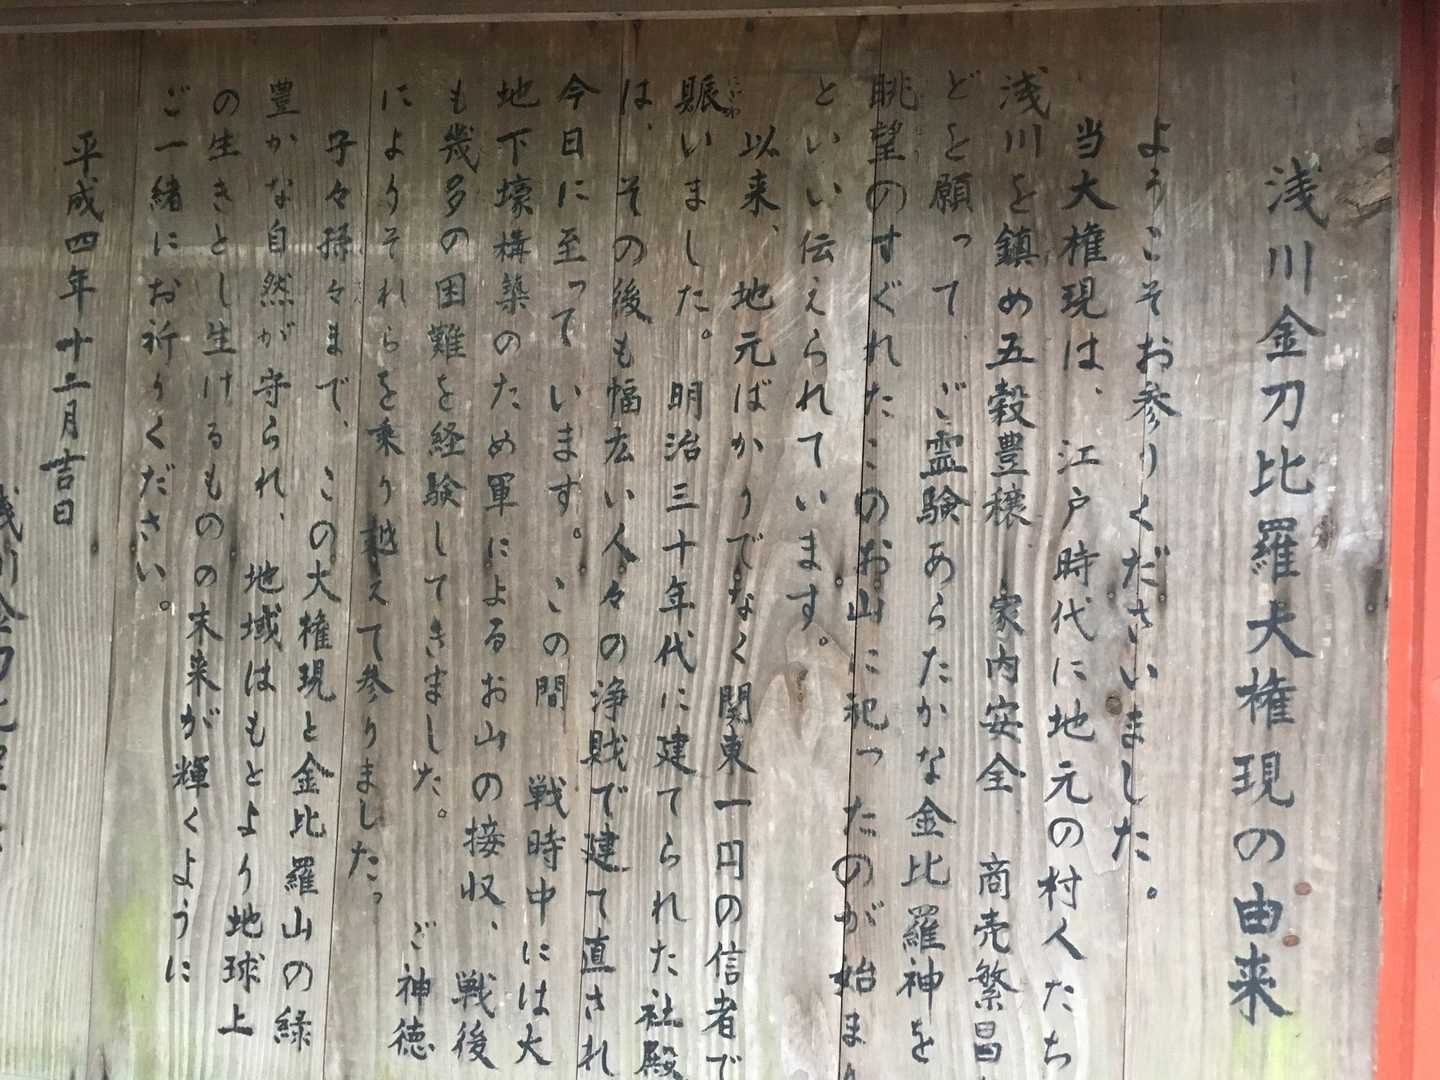 浅川金刀比羅大権現の由来
ようこそお参りくださいました。
当大権現は、江戸時代に地元の村人たち
浅川を鎮め五穀豊穣 家内安全 商売繁昌
どを願って、ご霊験あらたかな金比羅神を
眺望のすぐれたこのお山に祀ったのが始ま
といい伝えられています。
以来、地元ばかりでなく関東一円の信者で
賑いました。明治三十年代に建てられた社殿
にぎわ
は、その後も幅広い人々の浄財で建て直され
今日に至っています。この間 戦時中には大
地下壕構築のため軍によるお山の接収、戦後
も幾多の困難を経験してきました。ご神徳
によりそれらを乗り越えて参りました。
子々孫々まで、この大権現と金比羅山の緑
豊かな自然が守られ、地域はもとより地球上
の生きとし生けるものの末来が輝くように
ご一緒にお祈りください。
平成四年十二月吉日